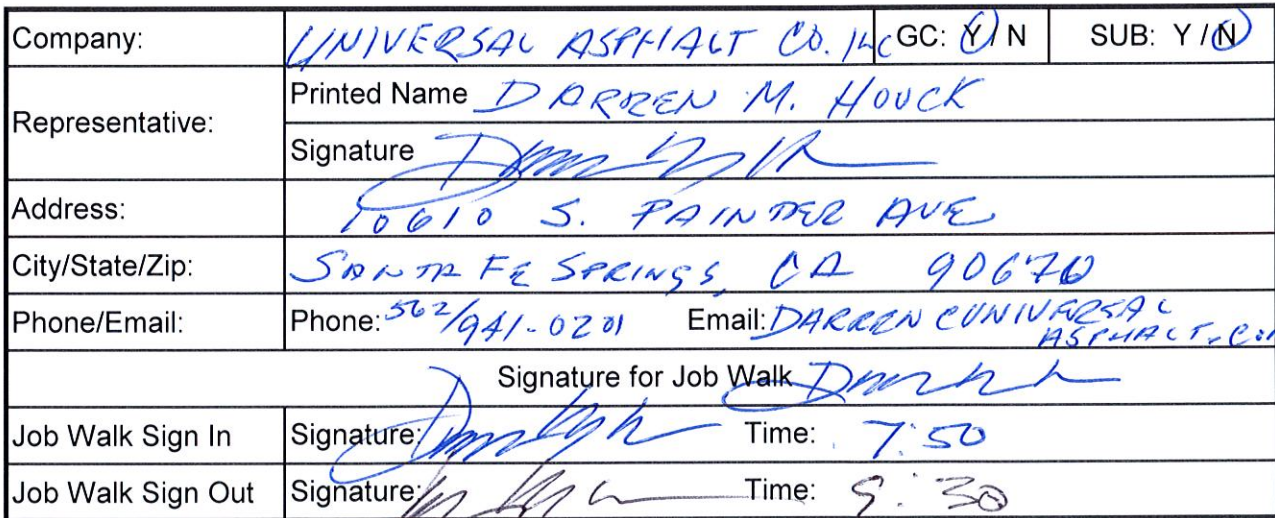 Company: UNIVERSAL ASPHALT CO. INC GC: Y / N SUB: Y / N
Representative:
Printed Name DARREN M. HOUCK
Signature
Address: 10610 S. PAINTER AVE
City/State/Zip: SANTA FE SPRINGS, CA 90670
Phone/Email: Phone: 562/941-0201 Email: DARREN@UNIVERSAL
ASPHALT.COM
Signature for Job Walk
Job Walk Sign In Signature: Time: 7:50
Job Walk Sign Out Signature: Time: 9:30